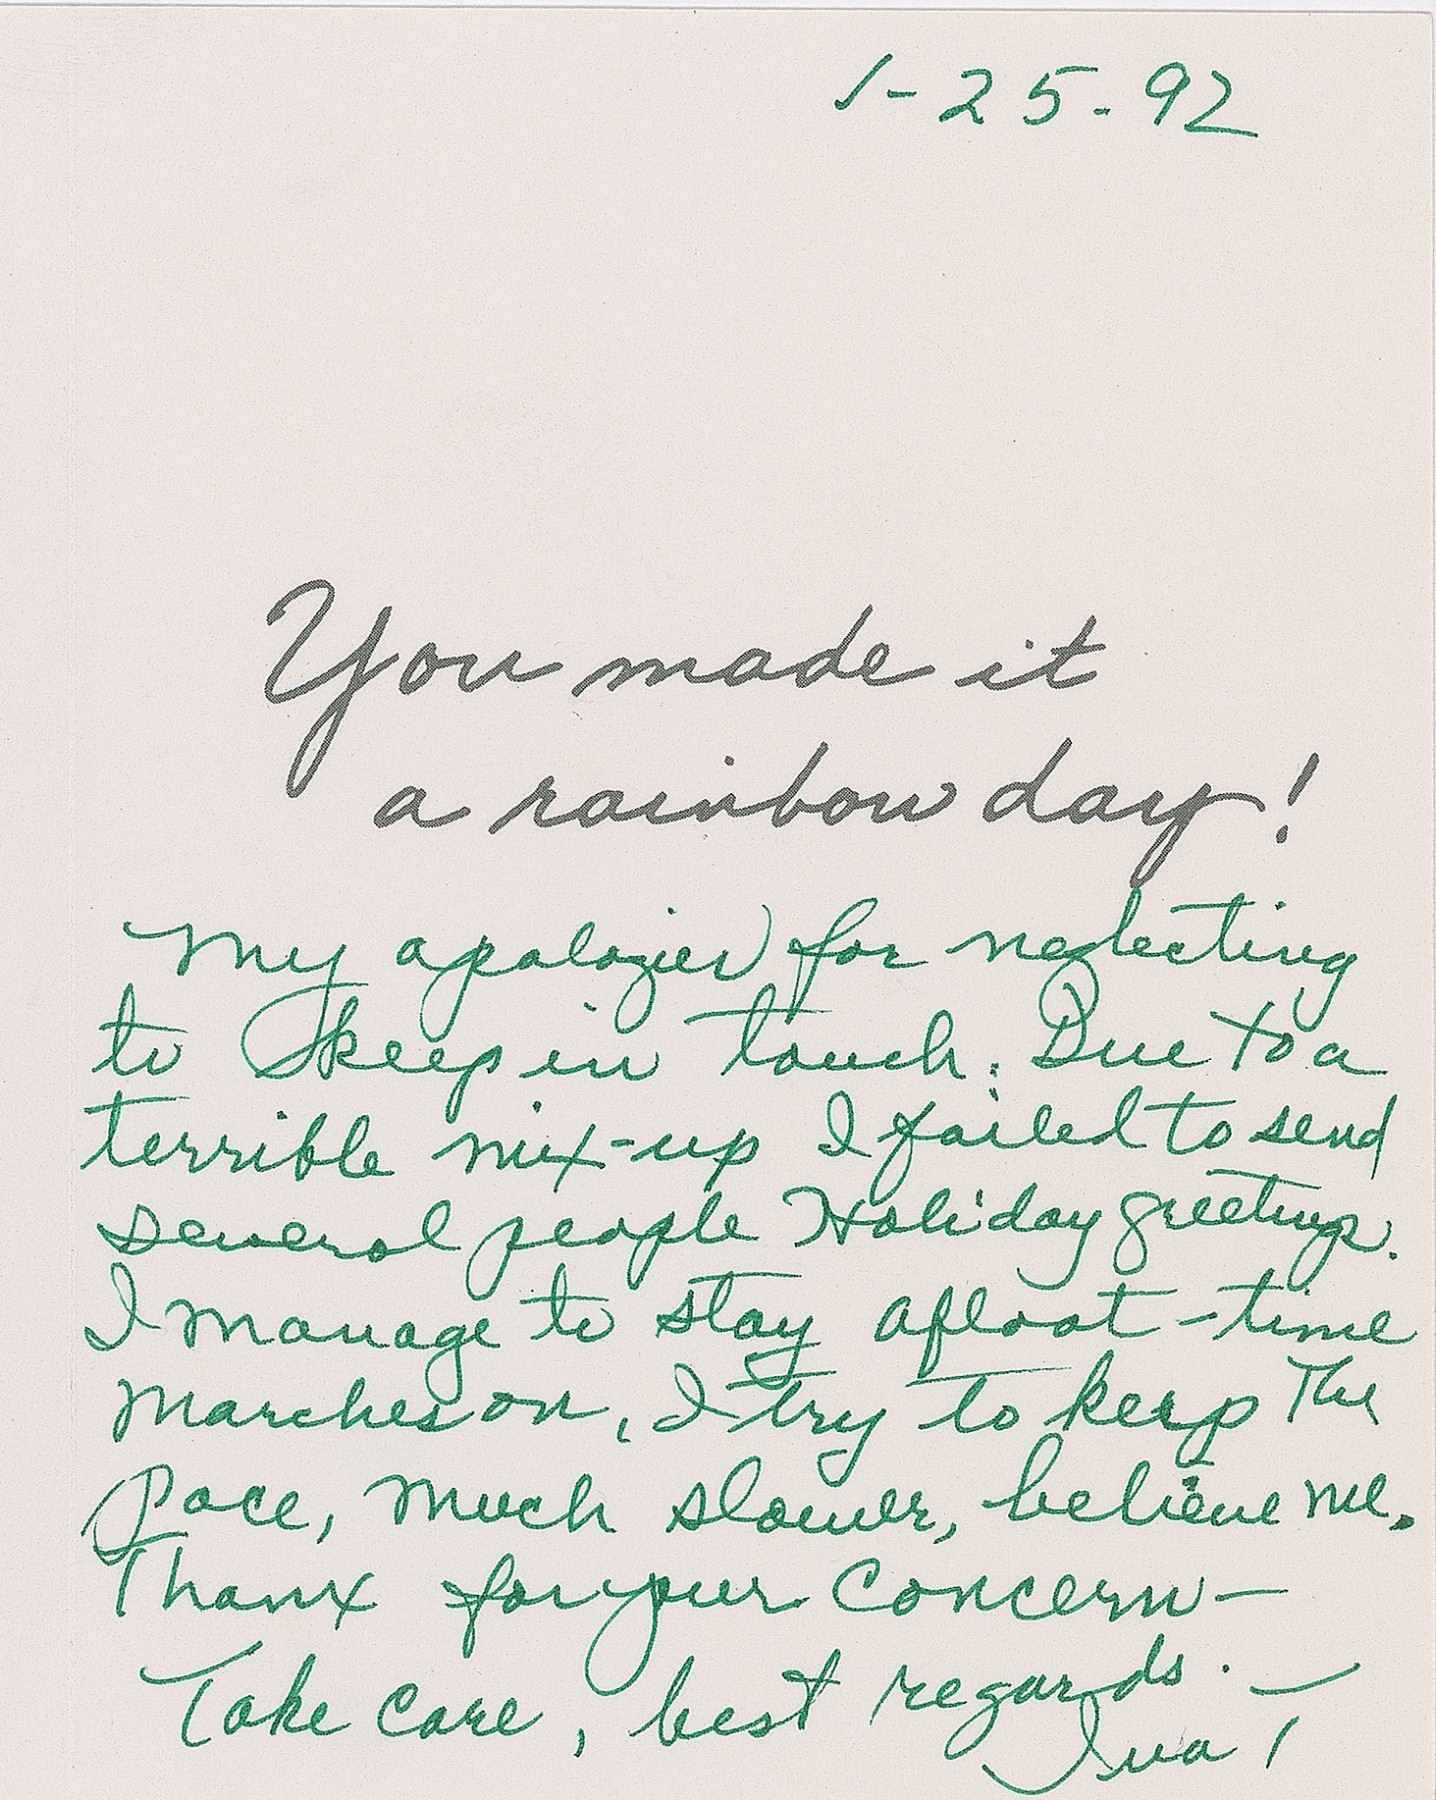 1-25-92
You made it
a rainbow day!
My apologies for neglecting
to keep in touch. Due to a
terrible mix-up I failed to send
several people Holiday greetings.
I manage to stay afloat - time
marches on, I try to keep the
pace, much slower, believe me.
Thanx for your concern -
Take care, best regards.
Iva!